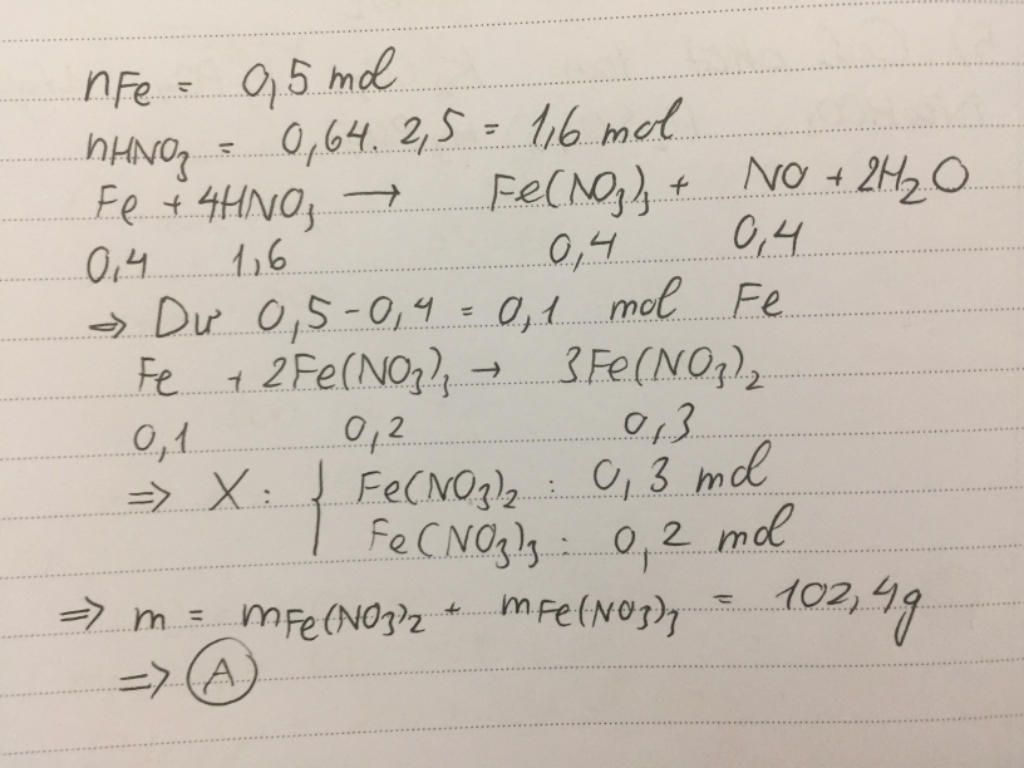 nFe = 0,5 mol
nHNO3 = 0,64. 2,5 = 1,6 mol
Fe + 4HNO3 → Fe(NO3)3 + NO + 2H2O
0,4 1,6 0,4 0,4
=> Dư 0,5 - 0,4 = 0,1 mol Fe
Fe + 2Fe(NO3)3 → 3Fe(NO3)2
0,1 0,2 0,3
=> X : { Fe(NO3)2 : 0,3 mol
Fe(NO3)3 : 0,2 mol
=> m = mFe(NO3)2 + mFe(NO3)3 = 102,4g
=> A